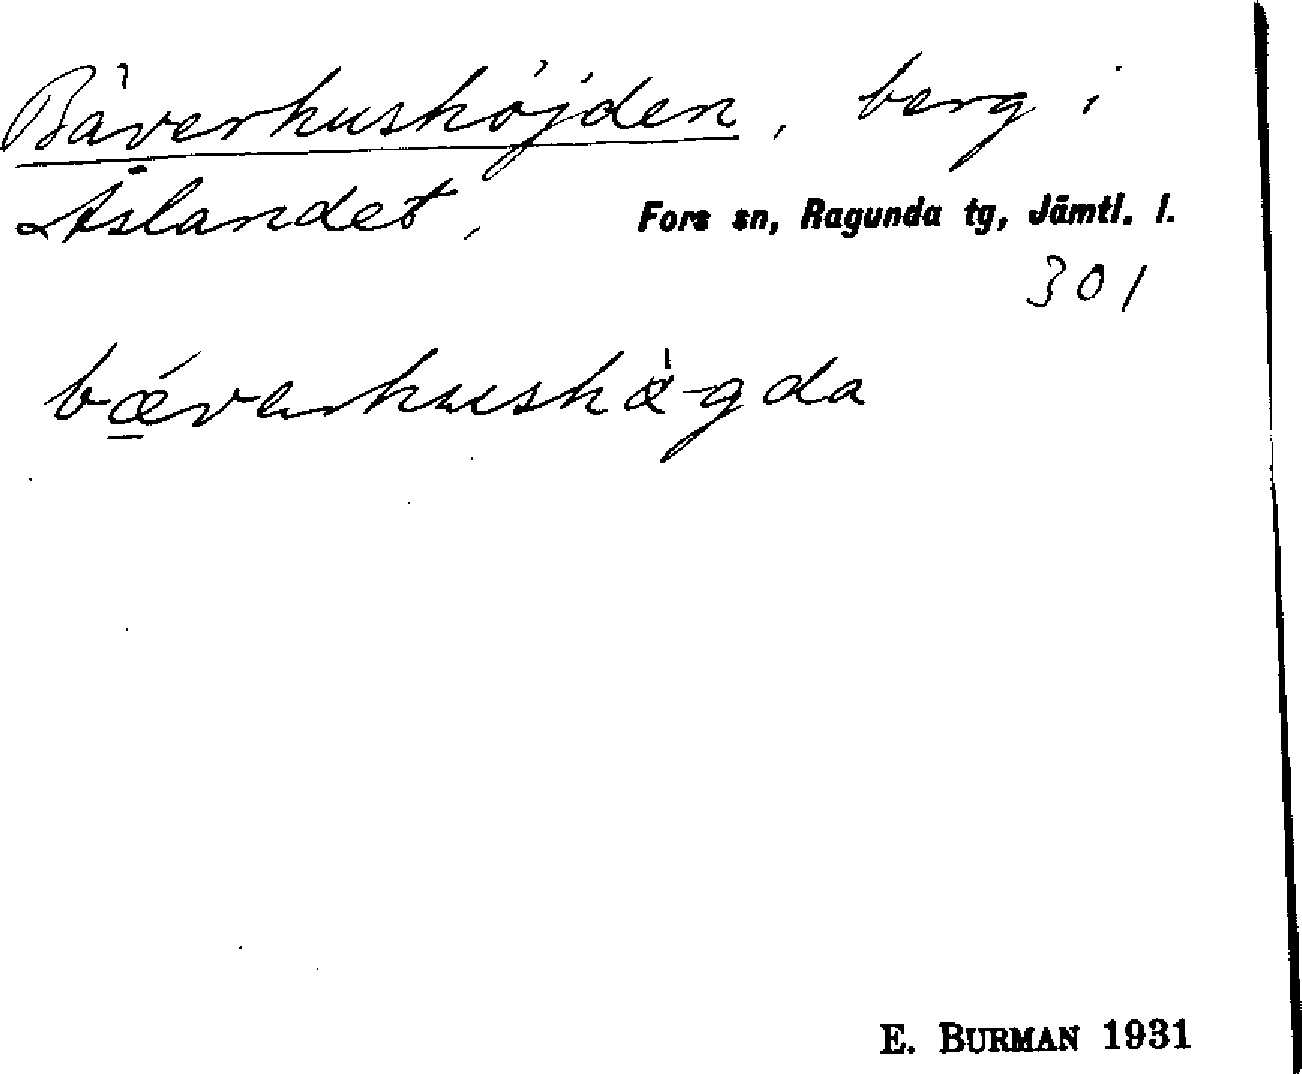 Bäverhushöjden, berg i
Åslandet, Fors sn, Ragunda tg, Jämtl. l.
301
bǽverhushö̀gda
E. BURMAN 1931